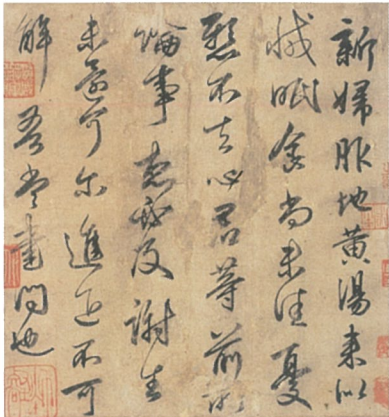 新婦服地黄湯來似
減眠食尚未佳憂
懸不去心君等前所
論事想必及謝生
未還何爾進退不可
解吾當書問也